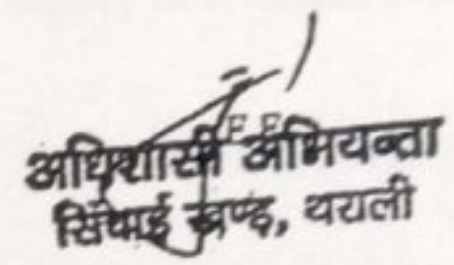 E E
अधिशासी अभियन्ता
सिंचाई खण्ड, थराली